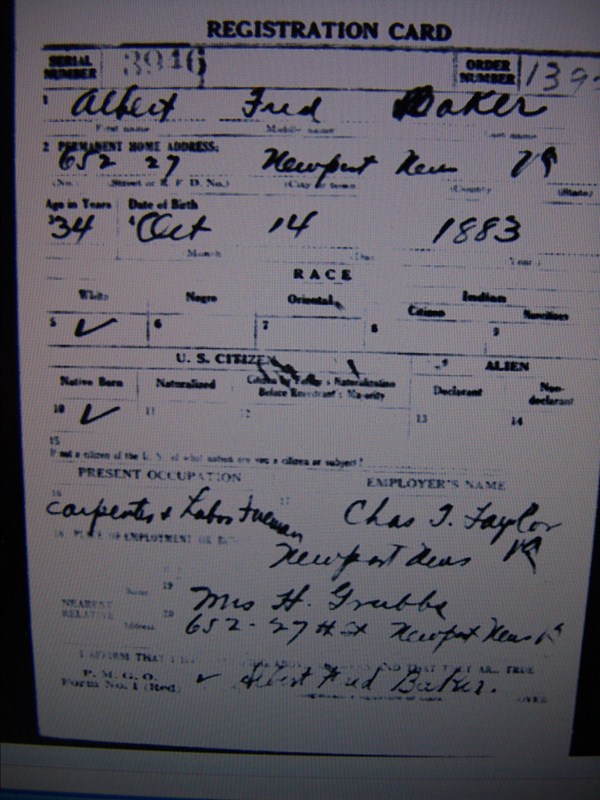 REGISTRATION CARD
SERIAL NUMBER 3946 ORDER NUMBER 139
1 Albert Fred Baker
First name Middle name Last name
2 PERMANENT HOME ADDRESS:
652 27 Newport News VA
(No.) (Street or R. F. D. No.) (City or town) (County) (State)
Age in Years Date of Birth
3 34 4 Oct 14 1883
Month Day Year
RACE
White Negro Oriental Indian
Citizen Noncitizen
5 ✓ 6 7 8 9
U. S. CITIZEN ALIEN
Native Born Naturalized Citizen by Father's Naturalization Before Registrant's Majority Declarant Non-declarant
10 ✓ 11 12 13 14
15
If not a citizen of the U. S. of what nation are you a citizen or subject?
PRESENT OCCUPATION EMPLOYER'S NAME
16 Carpenter & Labor Foreman 17 Chas T. Taylor
18 PLACE OF EMPLOYMENT OR
Newport News VA
NEAREST RELATIVE Name 19 Mrs H. Grubbs
Address 20 652-27th St Newport News VA
I AFFIRM THAT I AND THAT THEY ARE TRUE
P. M. G. O.
Form No. 1 (Red) ✓ Albert Fred Baker.
OVER